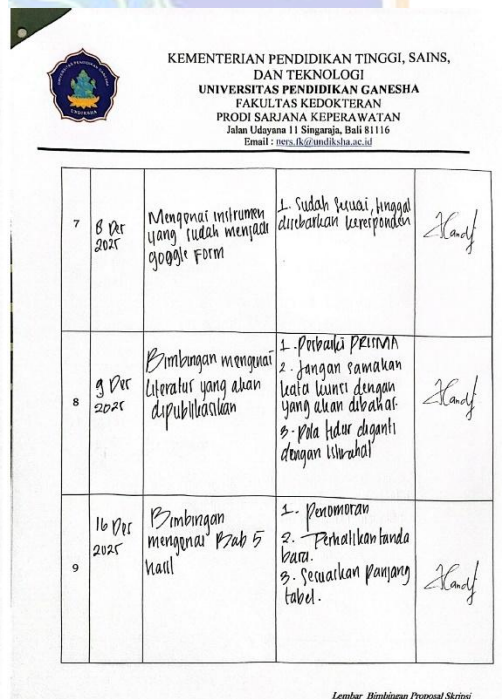 KEMENTERIAN PENDIDIKAN TINGGI, SAINS,
DAN TEKNOLOGI
UNIVERSITAS PENDIDIKAN GANESHA
FAKULTAS KEDOKTERAN
PRODI SARJANA KEPERAWATAN
Jalan Udayana 11 Singaraja, Bali 81116
Email : ners.fk@undiksha.ac.id
UNIVERSITAS PENDIDIKAN GANESHA
UNDIKSHA
7
8 Des
2025
Mengenai instrumen
yang sudah menjadi
google Form
1. Sudah sesuai, tinggal
disebarkan keresponden
8
9 Des
2025
Bimbingan mengenai
literatur yang akan
dipublikasikan
1. Perbaiki PRISMA
2. Jangan samakan
kata kunci dengan
yang akan dibahas.
3. Pola tidur diganti
dengan istirahat
9
16 Des
2025
Bimbingan
mengenai Bab 5
hasil
1. Penomoran
2. Perhatikan tanda
baca.
3. Sesuaikan panjang
tabel.
Lembar Bimbingan Proposal Skripsi